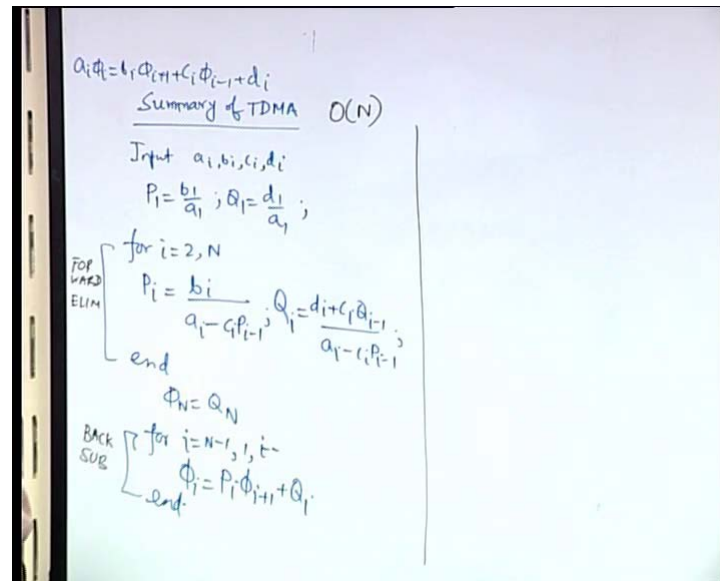 aᵢϕᵢ=bᵢϕᵢ₊₁+cᵢϕᵢ₋₁+dᵢ
Summary of TDMA O(N)
Input aᵢ,bᵢ,cᵢ,dᵢ
P₁=b₁/a₁ ; Q₁=d₁/a₁ ;
for i=2, N
FORWARD ELIM
Pᵢ = bᵢ/(aᵢ-cᵢPᵢ₋₁) ; Qᵢ=(dᵢ+cᵢQᵢ₋₁)/(aᵢ-cᵢPᵢ₋₁) ;
end
ϕN=QN
BACK SUB
for i=N-1, 1, i--
ϕᵢ=Pᵢϕᵢ₊₁+Qᵢ
end